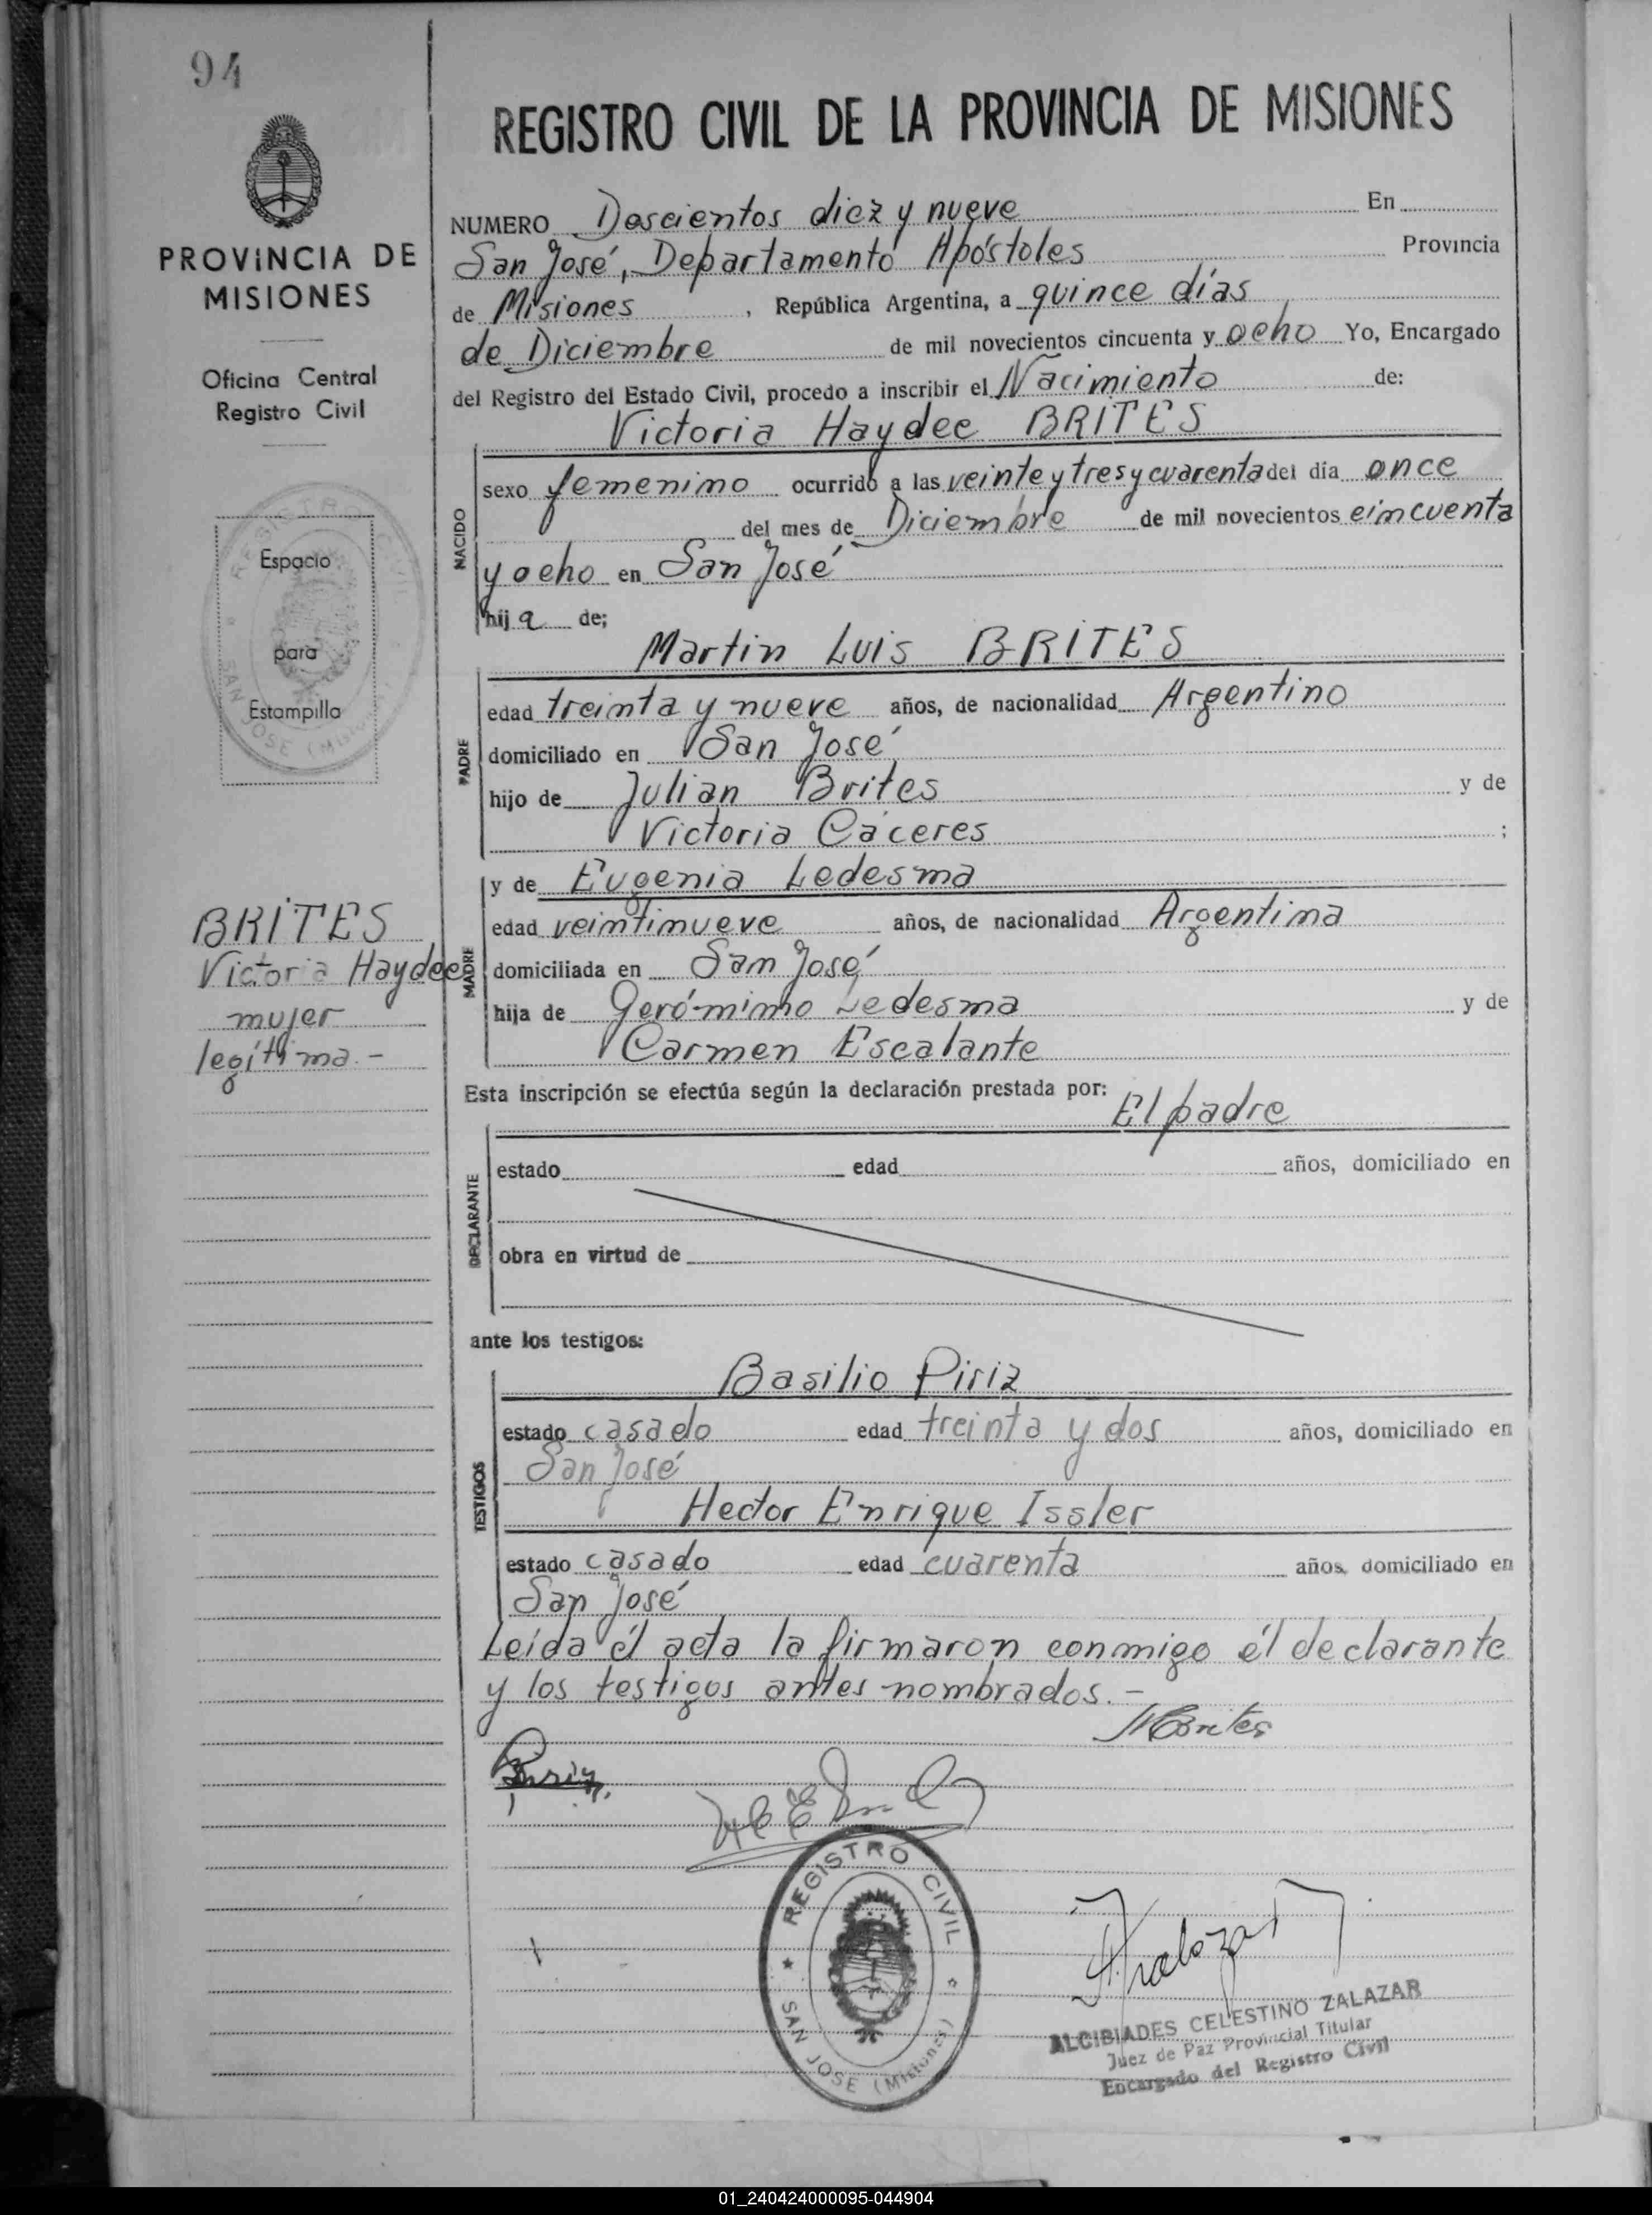 94
PROVINCIA DE
MISIONES
Oficina Central
Registro Civil
Espacio
para
Estampilla
REGISTRO CIVIL
SAN JOSE (Misiones)
BRITES
Victoria Haydee
mujer
legítima.-
REGISTRO CIVIL DE LA PROVINCIA DE MISIONES
NUMERO Doscientos diez y nueve En
San José, Departamento Apóstoles Provincia
de Misiones, República Argentina, a quince días
de Diciembre de mil novecientos cincuenta y ocho Yo, Encargado
del Registro del Estado Civil, procedo a inscribir el Nacimiento de:
Victoria Haydee BRITES
NACIDO
sexo femenino ocurrido a las veinte y tres y cuarenta del día once
del mes de Diciembre de mil novecientos cincuenta
y ocho en San José
hija de;
Martin Luis BRITES
PADRE
edad treinta y nueve años, de nacionalidad Argentino
domiciliado en San José
hijo de Julian Brites y de
Victoria Cáceres ;
MADRE
y de Eugenia Ledesma
edad veintinueve años, de nacionalidad Argentina
domiciliada en San José
hija de Gerónimo Ledesma y de
Carmen Escalante
Esta inscripción se efectúa según la declaración prestada por:
El padre
DECLARANTE
estado edad años, domiciliado en
obra en virtud de
ante los testigos:
TESTIGOS
Basilio Piriz
estado casado edad treinta y dos años, domiciliado en
San José
Hector Enrique Issler
estado casado edad cuarenta años, domiciliado en
San José
Leída él acta la firmaron conmigo él declarante
y los testigos antes nombrados.-
MBrites
REGISTRO CIVIL
SAN JOSE (Misiones)
ALCIBIADES CELESTINO ZALAZAR
Juez de Paz Provincial Titular
Encargado del Registro Civil
01_240424000095-044904